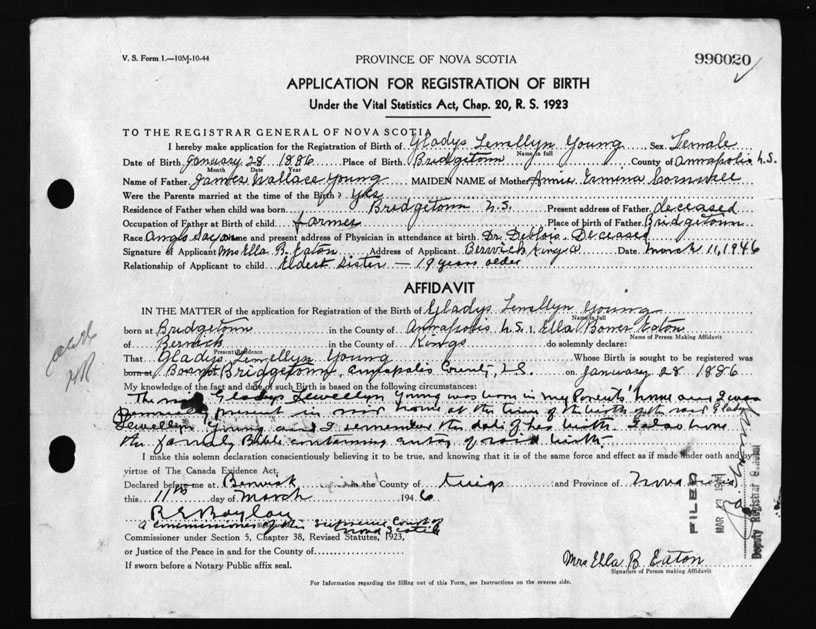 V. S. Form 1.—10M-10-44
PROVINCE OF NOVA SCOTIA
990020
APPLICATION FOR REGISTRATION OF BIRTH
Under the Vital Statistics Act, Chap. 20, R. S. 1923
TO THE REGISTRAR GENERAL OF NOVA SCOTIA
I hereby make application for the Registration of Birth of Gladys Lewellyn Young Sex Female
Name in full
Date of Birth January 28 1886 Place of Birth Bridgetown County of Annapolis N.S.
Month Date Year
Name of Father James Wallace Young MAIDEN NAME of Mother Annie Ermina
Were the Parents married at the time of the Birth? Yes
Residence of Father when child was born Bridgetown N.S. Present address of Father deceased
Occupation of Father at Birth of child farmer Place of birth of Father Bridgetown
Race Anglo Saxon Name and present address of Physician in attendance at birth Dr. DeBlois Deceased
Signature of Applicant Mrs Ella B. Eaton Address of Applicant Berwick Kings Date March 11, 1946
Relationship of Applicant to child Eldest sister — 19 years older
AFFIDAVIT
IN THE MATTER of the application for Registration of the Birth of Gladys Lewellyn Young
Name in full
born at Bridgetown in the County of Annapolis N.S. I, Ella Eaton
Name of Person Making Affidavit
of Berwick in the County of Kings do solemnly declare:
Present Residence
That Gladys Lewellyn Young Whose Birth is sought to be registered was
born at Born at Bridgetown, Annapolis County, N.S. on January 28 1886
My knowledge of the fact and date of such Birth is based on the following circumstances:
The said Gladys Lewellyn Young was born in my Parents' home and I was
present in our home at the time of the birth of the said Gladys
Lewellyn Young and I remember the date of her birth. I also have
the family Bible containing entry of said birth.
I make this solemn declaration conscientiously believing it to be true, and knowing that it is of the same force and effect as if made under oath and by
virtue of The Canada Evidence Act.
Declared before me at Berwick in the County of Kings and Province of Nova Scotia
this 11th day of March 1946
A Commissioner of the Supreme Court of
Nova Scotia
Commissioner under Section 5, Chapter 38, Revised Statutes, 1923,
or Justice of the Peace in and for the County of
If sworn before a Notary Public affix seal.
Mrs Ella B. Eaton
Signature of Person making Affidavit
For Information regarding the filling out of this Form, see Instructions on the reverse side.
FILED
Deputy Registrar General